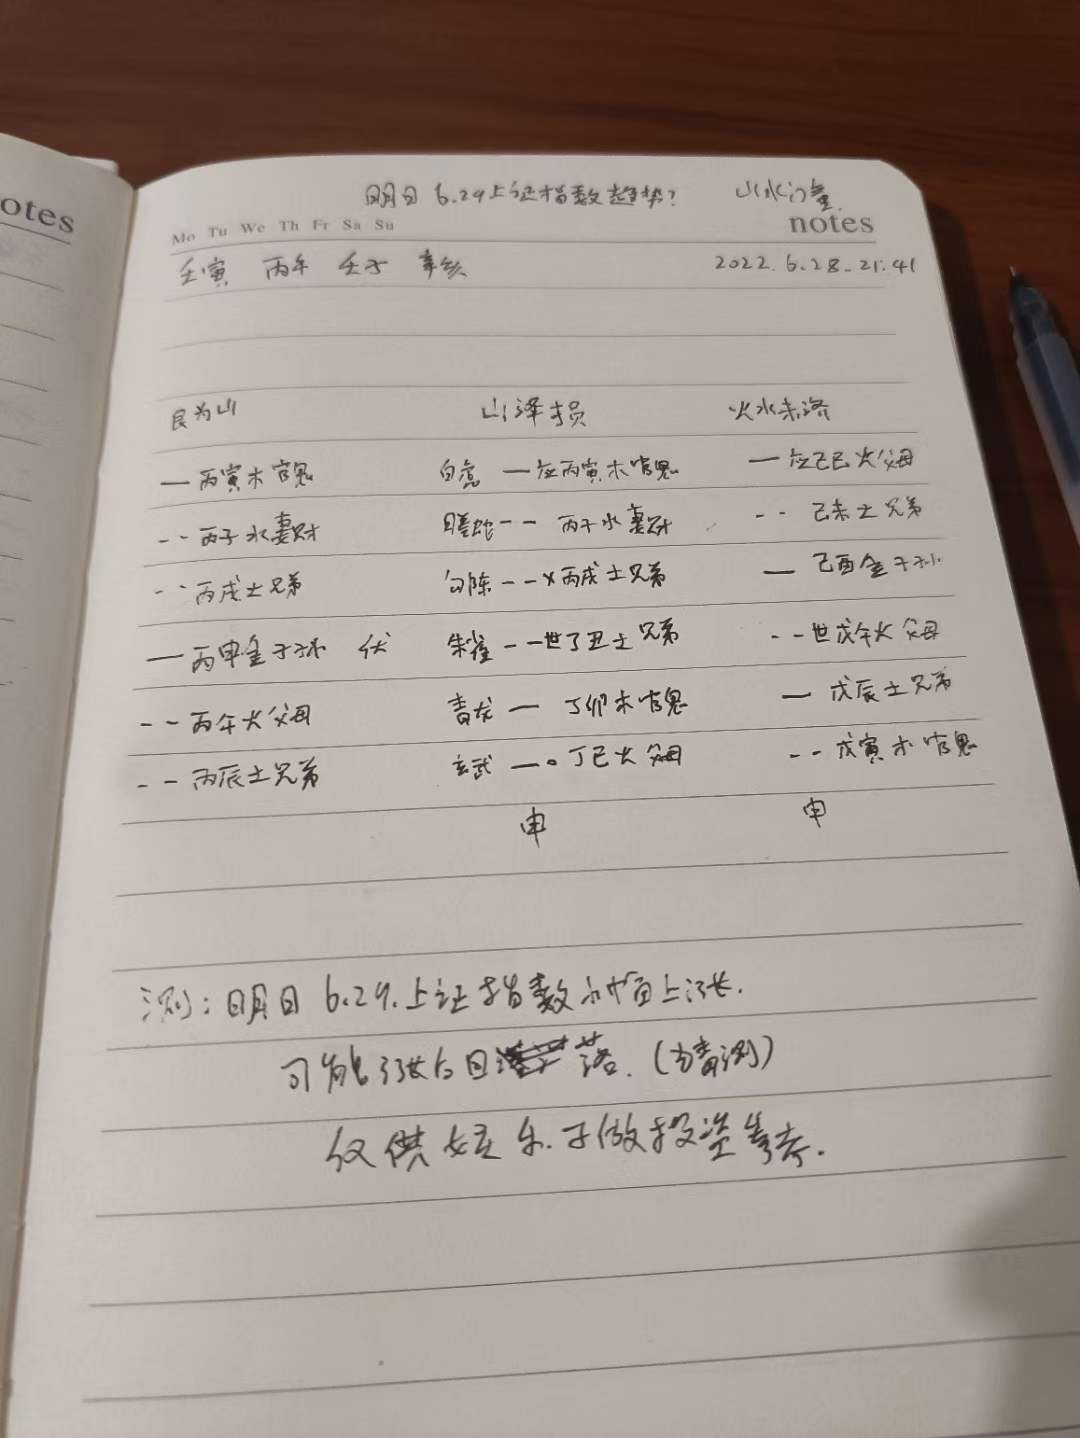 otes
明日 6.29上证指数趋势? 山水门量
notes
Mo Tu We Th Fr Sa Su
壬寅 丙午 壬子 辛亥 2022.6.28.21:41
艮为山 山泽损 火水未济
丙寅木官鬼 白虎 应丙寅木官鬼 应己巳火父母
丙子水妻财 腾蛇 丙子水妻财 己未土兄弟
丙戌土兄弟 勾陈 x丙戌土兄弟 己酉金子孙
丙申金子孙 伏 朱雀 世丁丑土兄弟 世戊午火父母
丙午火父母 青龙 丁卯木官鬼 戊辰土兄弟
丙辰土兄弟 玄武 丁巳火父母 戊寅木官鬼
申 申
测:明日 6.29.上证指数小幅上涨.
可能涨后回落.(盲测)
仅供娱乐.不做投资参考.